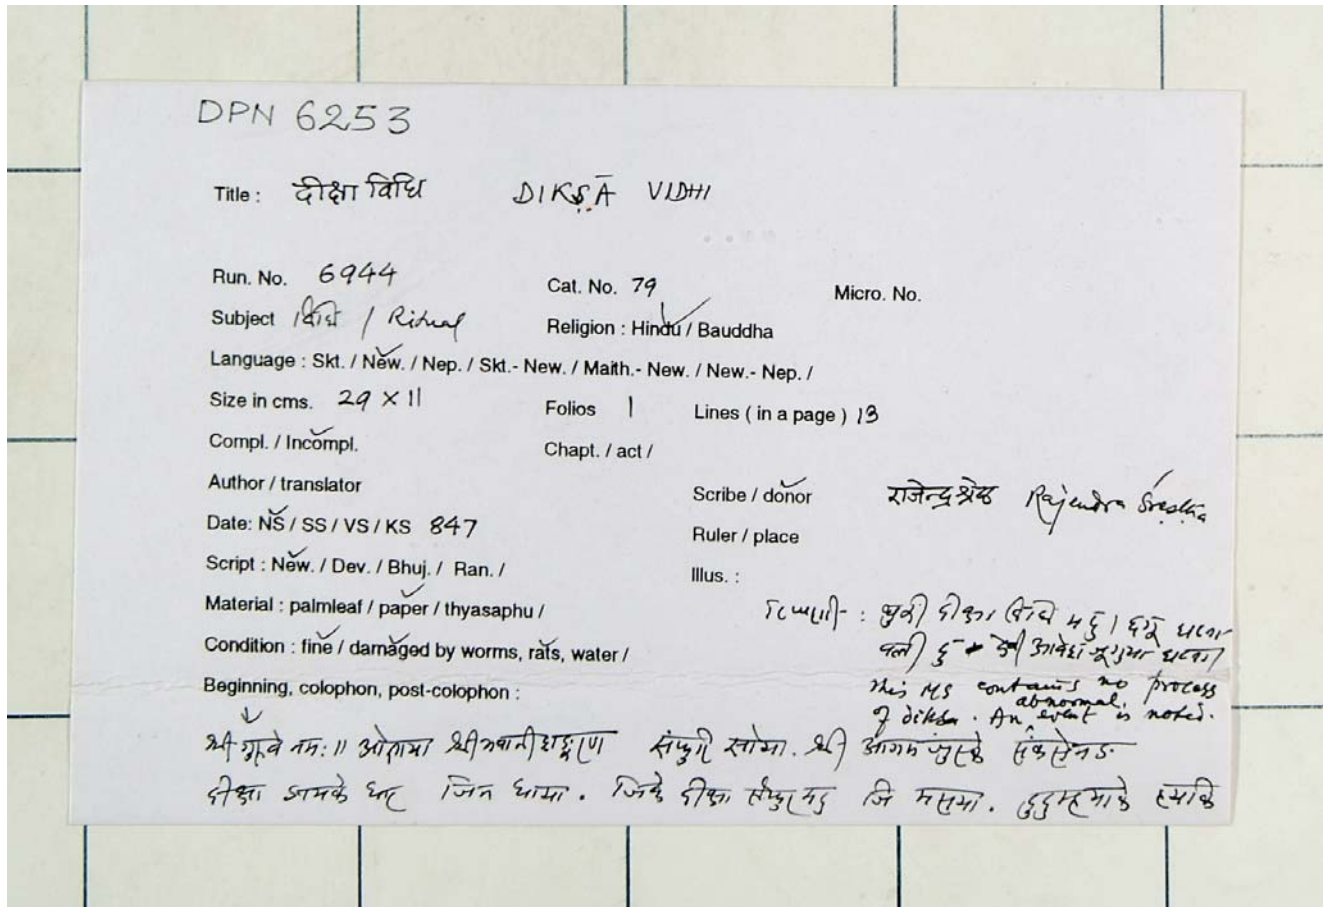 DPN 6253
Title : दीक्षा विधि DIKṢĀ VIDHI
Run. No. 6944 Cat. No. 79 Micro. No.
Subject विधि / Ritual Religion : Hindu / Bauddha
Language : Skt. / New. / Nep. / Skt.- New. / Maith.- New. / New.- Nep. /
Size in cms. 29 × 11 Folios 1 Lines ( in a page ) 13
Compl. / Incompl. Chapt. / act /
Author / translator Scribe / donor राजेन्द्र श्रेष्ठ Rajendra Śreṣṭha
Date: NS / SS / VS / KS 847 Ruler / place
Script : New. / Dev. / Bhuj. / Ran. / Illus. :
Material : palmleaf / paper / thyasaphu /
टिप्पणी - : थुकी दीक्षा विधि मदु ।
Condition : fine / damaged by worms, rats, water /
Beginning, colophon, post-colophon :
this MS contains no process
of diksa. An abnormal event is noted.
श्री गुरुवे नमः ॥ श्री भवानीशङ्करण श्री आगम
दीक्षा जिन धाया . जिके दीक्षा जि मसया .